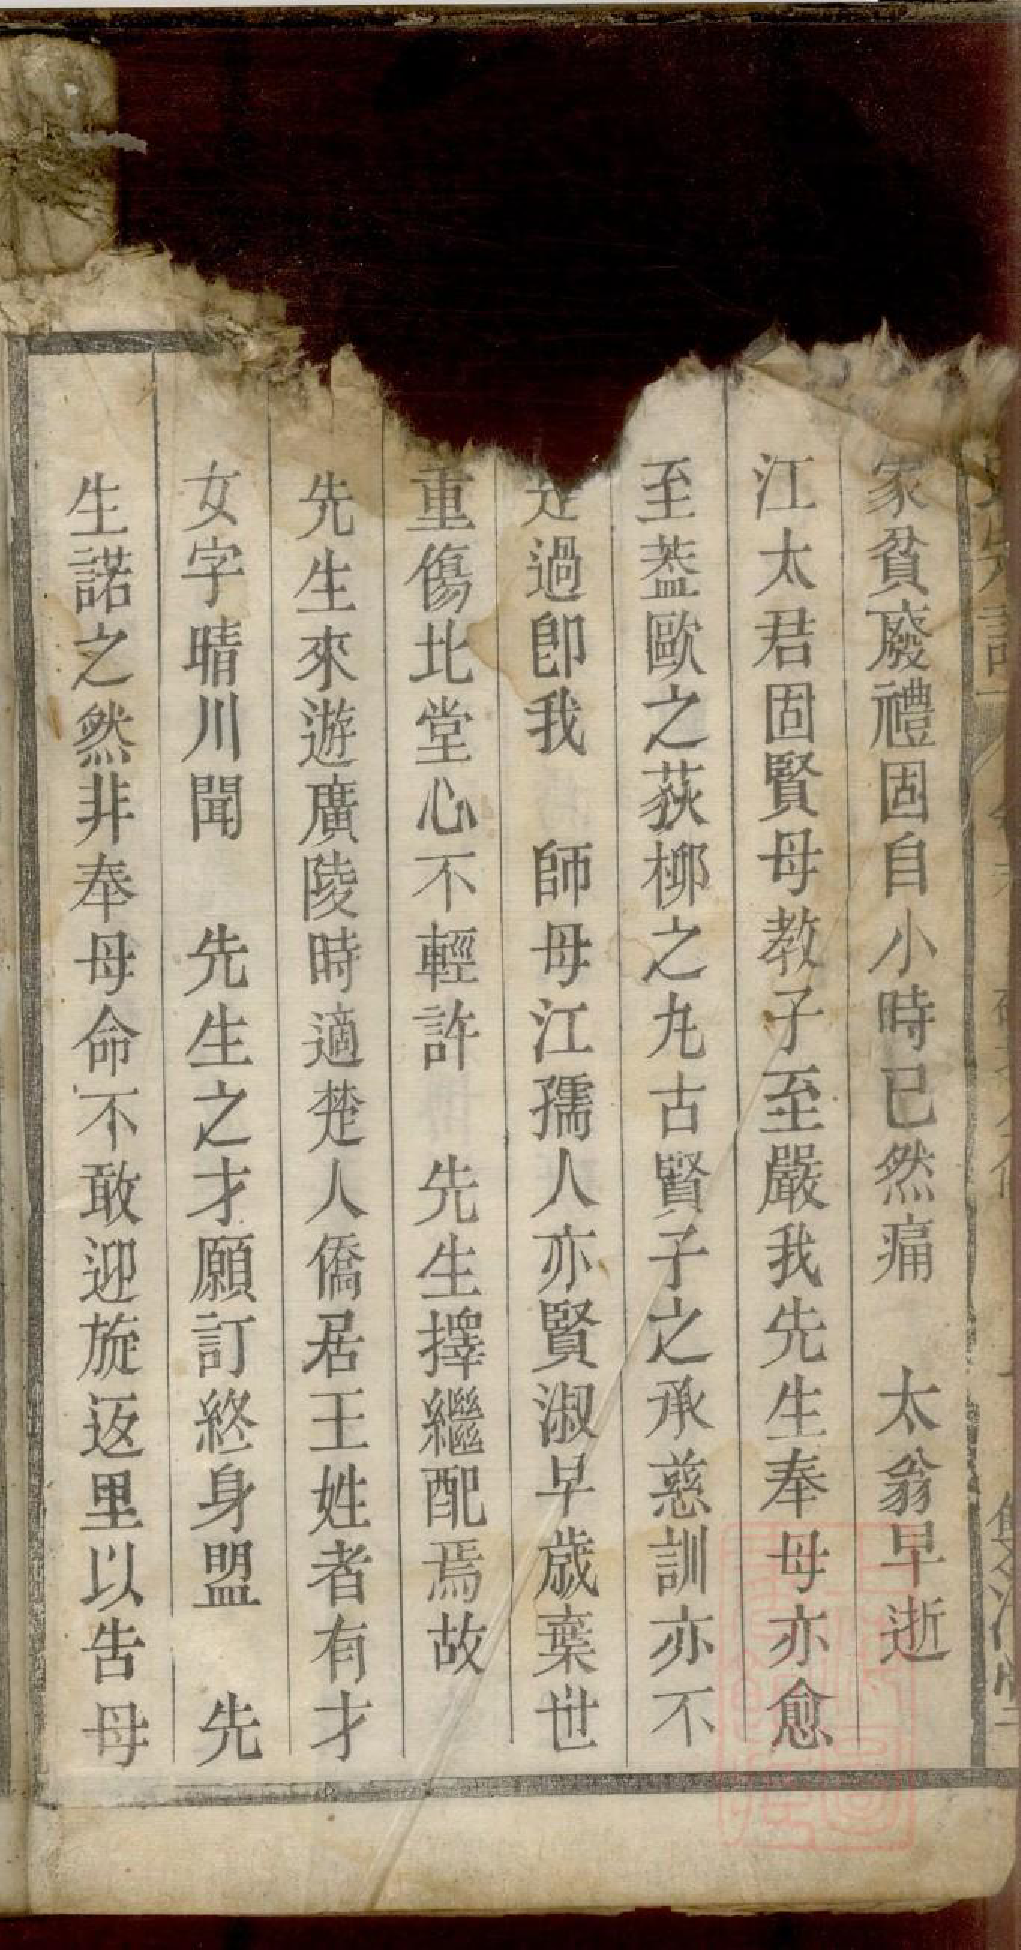 家貧廢禮固自小時已然痛　太翁早逝
江太君固賢母教子至嚴我先生奉母亦愈
至葢歐之荻柳之丸古賢子之承慈訓亦不
是過卽我　師母江孺人亦賢淑早歲棄世
重傷北堂心不輕許　先生擇繼配焉故
先生來遊廣陵時適楚人僑居王姓者有才
女字晴川聞　先生之才願訂終身盟　先
生諾之然非奉母命不敢迎旋返里以告母